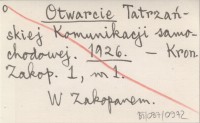 Otwarcie Tatrzań-
skiej Komunikacji samo-
chodowej. 1926. – Kron.
Zakop. 1, nr 1.
W Zakopanem.